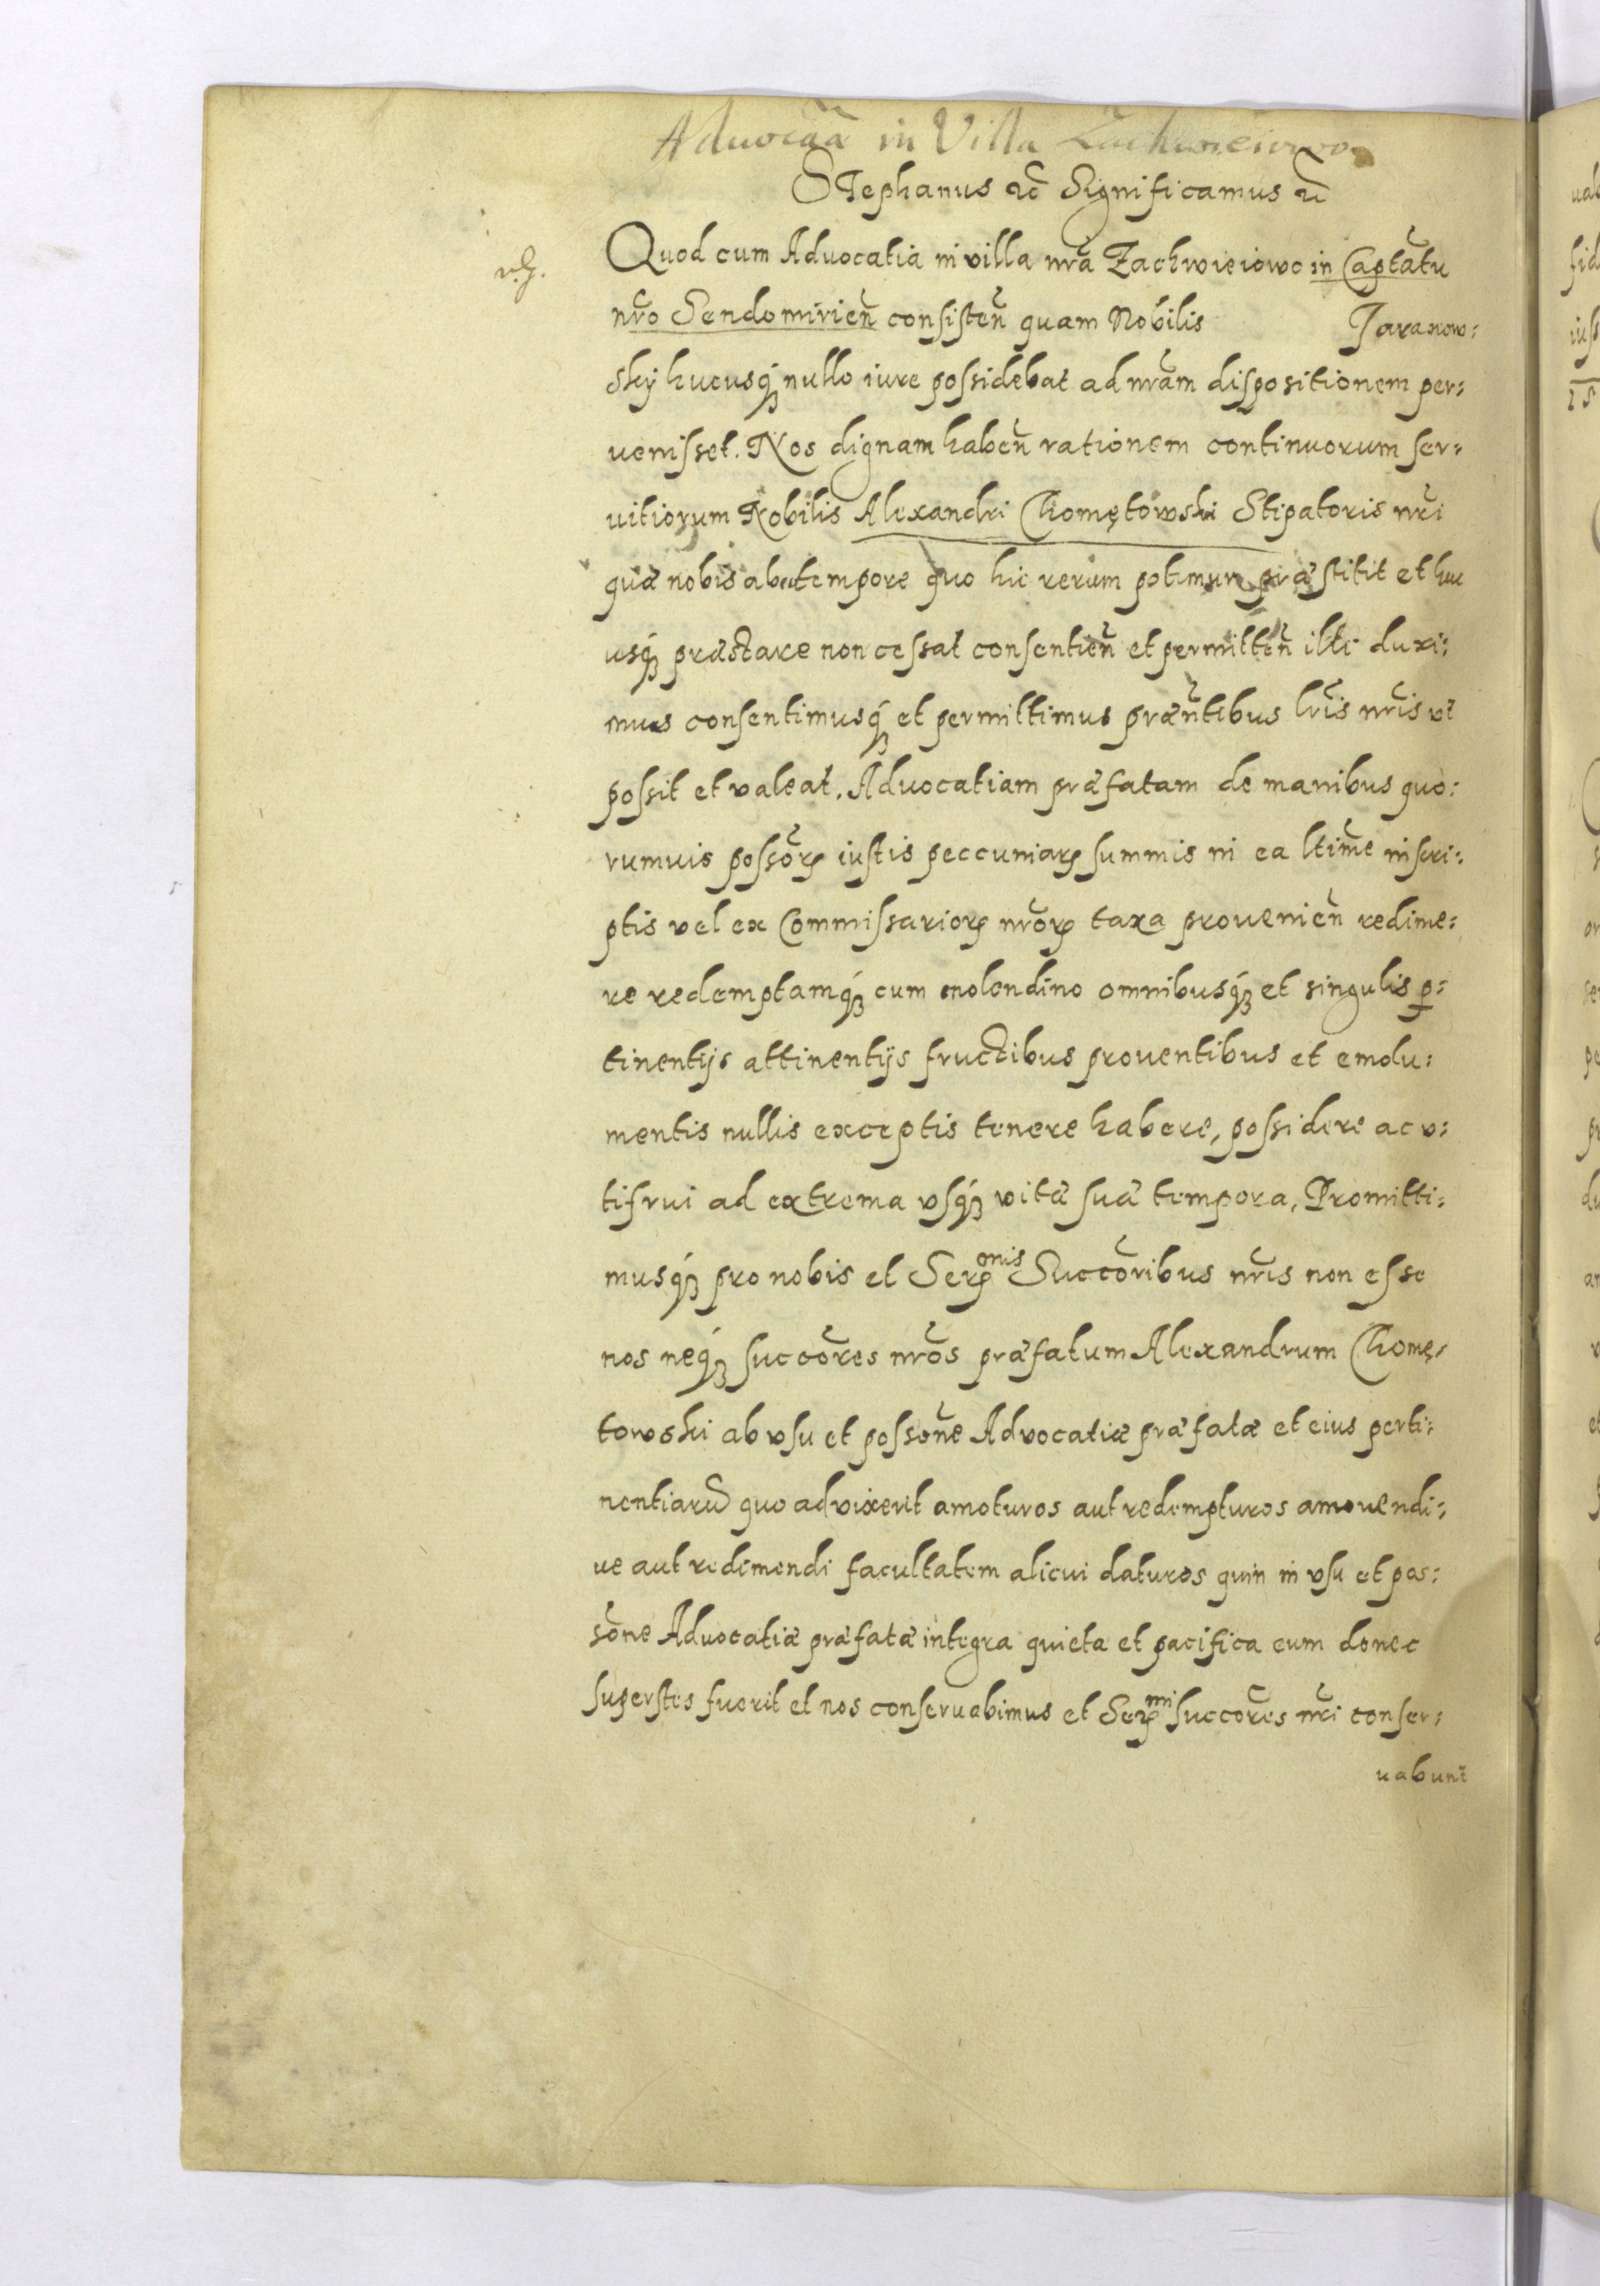 Aduocãa in Villa Zachwieiowo
Stephanus ec̃ Significamus ec̃
Quod cum Aduocatia in villa nrã Zachwieiowo in Captãtu
nrõ Sendomirieñ consisteñ quam Nobilis Taranow:
skÿ hucusq́ꝫ nullo iure possidebat ad nrãm dispositionem per:
uenisset. Nos dignam habeñ rationem continuorum ser:
uitiorum Nobilis Alexandri Chomętowski Stipatoris nrĩ
quæ nobis ab eo tempore quo hic rerum potimur præstitit et huc
usq́ꝫ præstare non cessat consentieñ et permitteñ illi duxi:
mus consentimusq́ꝫ et permittimus præñtibus lrĩs nrĩs vt
possit et valeat. Aduocatiam præfatam de manibus quo:
rumuis possõrꝝ iustis peccuniarꝝ summis in ea ltĩme inscri:
ptis vel ex Commissariorꝝ nrõrꝝ taxa prouenieñ redime:
re redemptamq́ꝫ cum molendino omnibusq́ꝫ et singulis ꝑ:
tinentijs attinentijs fructibus prouentibus et emolu:
mentis nullis exceptis tenere habere, possidere ac v:
tifrui ad extrema vsq́ꝫ vitæ suæ tempora, Promitti:
musq́ꝫ pro nobis et Serꝝmis Succõribus nrĩs non esse
nos neq́ꝫ succõres nrõs præfatum Alexandrum Chomę/
towski ab vsu et possõne Aduocatiæ præfatæ et eius perti:
nentiarũ quo ad vixerit amoturos aut redempturos amouendi:
ue aut redimendi facultatem alicui daturos quin in vsu et pos:
sõne Aduocatiæ præfatæ integra quieta et pacifica eum donec
superstes fuerit et nos conseruabimus et Serꝝmi succõres nrĩ conser:
uabunt